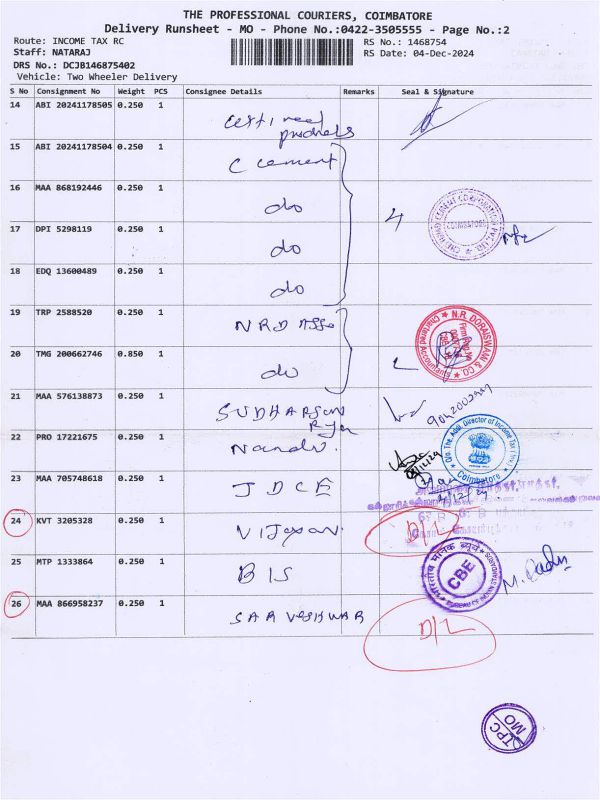 THE PROFESSIONAL COURIERS, COIMBATORE
Delivery Runsheet - MO - Phone No.:0422-3505555 - Page No.:2
Route: INCOME TAX RC
RS No.: 1468754
Staff: NATARAJ
RS Date: 04-Dec-2024
DRS No.: DCJB146875402
Vehicle: Two Wheeler Delivery
S No Consignment No Weight PCS Consignee Details Remarks Seal & Signature
14 ABI 20241178505 0.250 1
products
15 ABI 20241178504 0.250 1 C cement
16 MAA 868192446 0.250 1 do
4
CHETTINAD CEMENT CORPORATION PVT. LTD. COIMBATORE
17 DPI 5298119 0.250 1 do
18 EDQ 13600489 0.250 1 do
19 TRP 2588520 0.250 1 NRD Asso
N.R. DORAISWAMI & CO Chartered Accountants
20 TMG 200662746 0.850 1 do
21 MAA 576138873 0.250 1 SUDHARSUN
22 PRO 17221675 0.250 1 Nandu.
O/o. The Addl. Director of Income Tax (Inv.) Coimbatore
23 MAA 705748618 0.250 1 JDCE
24 KVT 3205328 0.250 1 Vijayan. D/L
25 MTP 1333864 0.250 1 BIS
भारतीय मानक ब्यूरो CBE BUREAU OF INDIAN STANDARDS
26 MAA 866958237 0.250 1 SARVESHWAR D/L
TPC MO